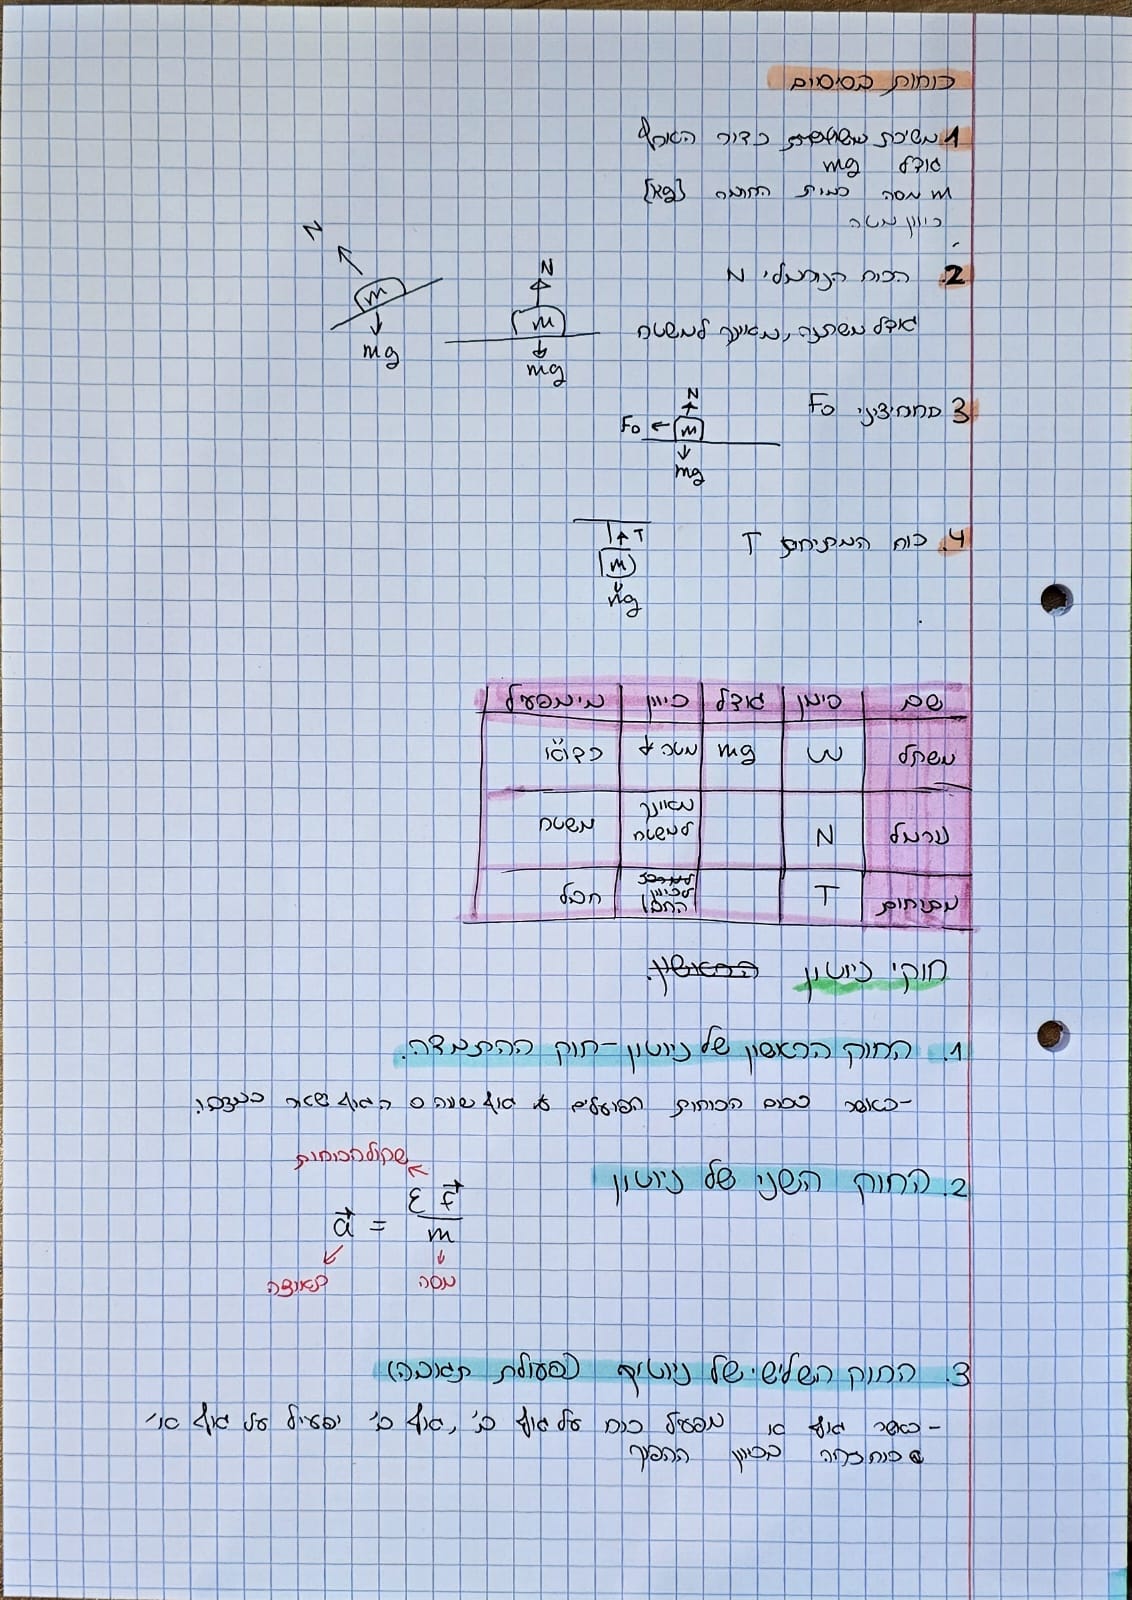 כוחות בסיסים
1 משיכת כדור הארץ
גודל mg
m מסה כמית החומר [kg]
כיוון מטה
2. הכוח הנורמלי N
גודל משתנה, מאונך למשטח
N
m
mg
N
m
mg
3 כח חיצוני Fo
N
Fo
m
mg
4. כוח המתיחות T
T
m
mg
שם סימן גודל כיוון מי מפעיל
משקל W mg מטה ↓ כדו"א
נורמל N מאונך למשטח משטח
מתיחות T לכיוון החבל חבל
חוקי ניוטון הראשון.
1. החוק הראשון של ניוטון - חוק ההתמדה.
- כאשר סכום הכוחות הפועלים על גוף שווה 0 הגוף
2. החוק השני של ניוטון
שקול הכוחות
a = Σ F / m
תאוצה
מסה
3. החוק השלישי של ניוטון (פעולת תגובה)
- כאשר גוף א' מפעיל כוח על גוף ב', גוף ב' יפעיל על גוף א'
כוח זהה בכיוון ההפוך